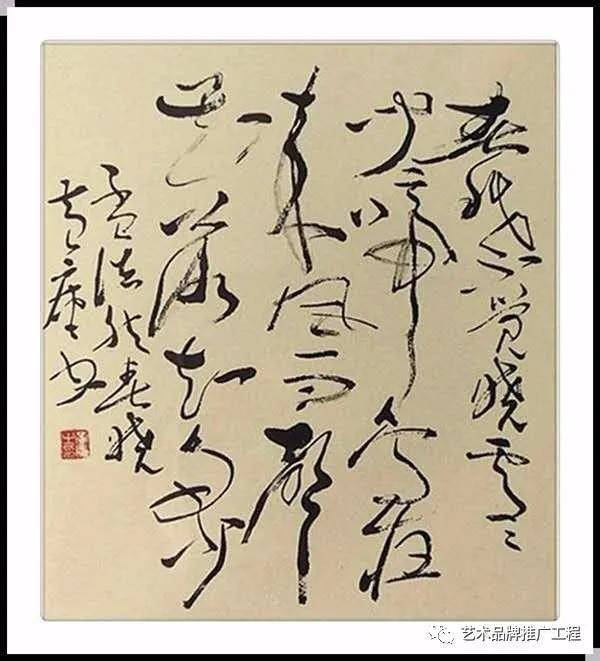 春眠不觉晓处处
闻啼鸟夜
来风雨声
花落知多少
孟浩然春晓
书
艺术品牌推广工程